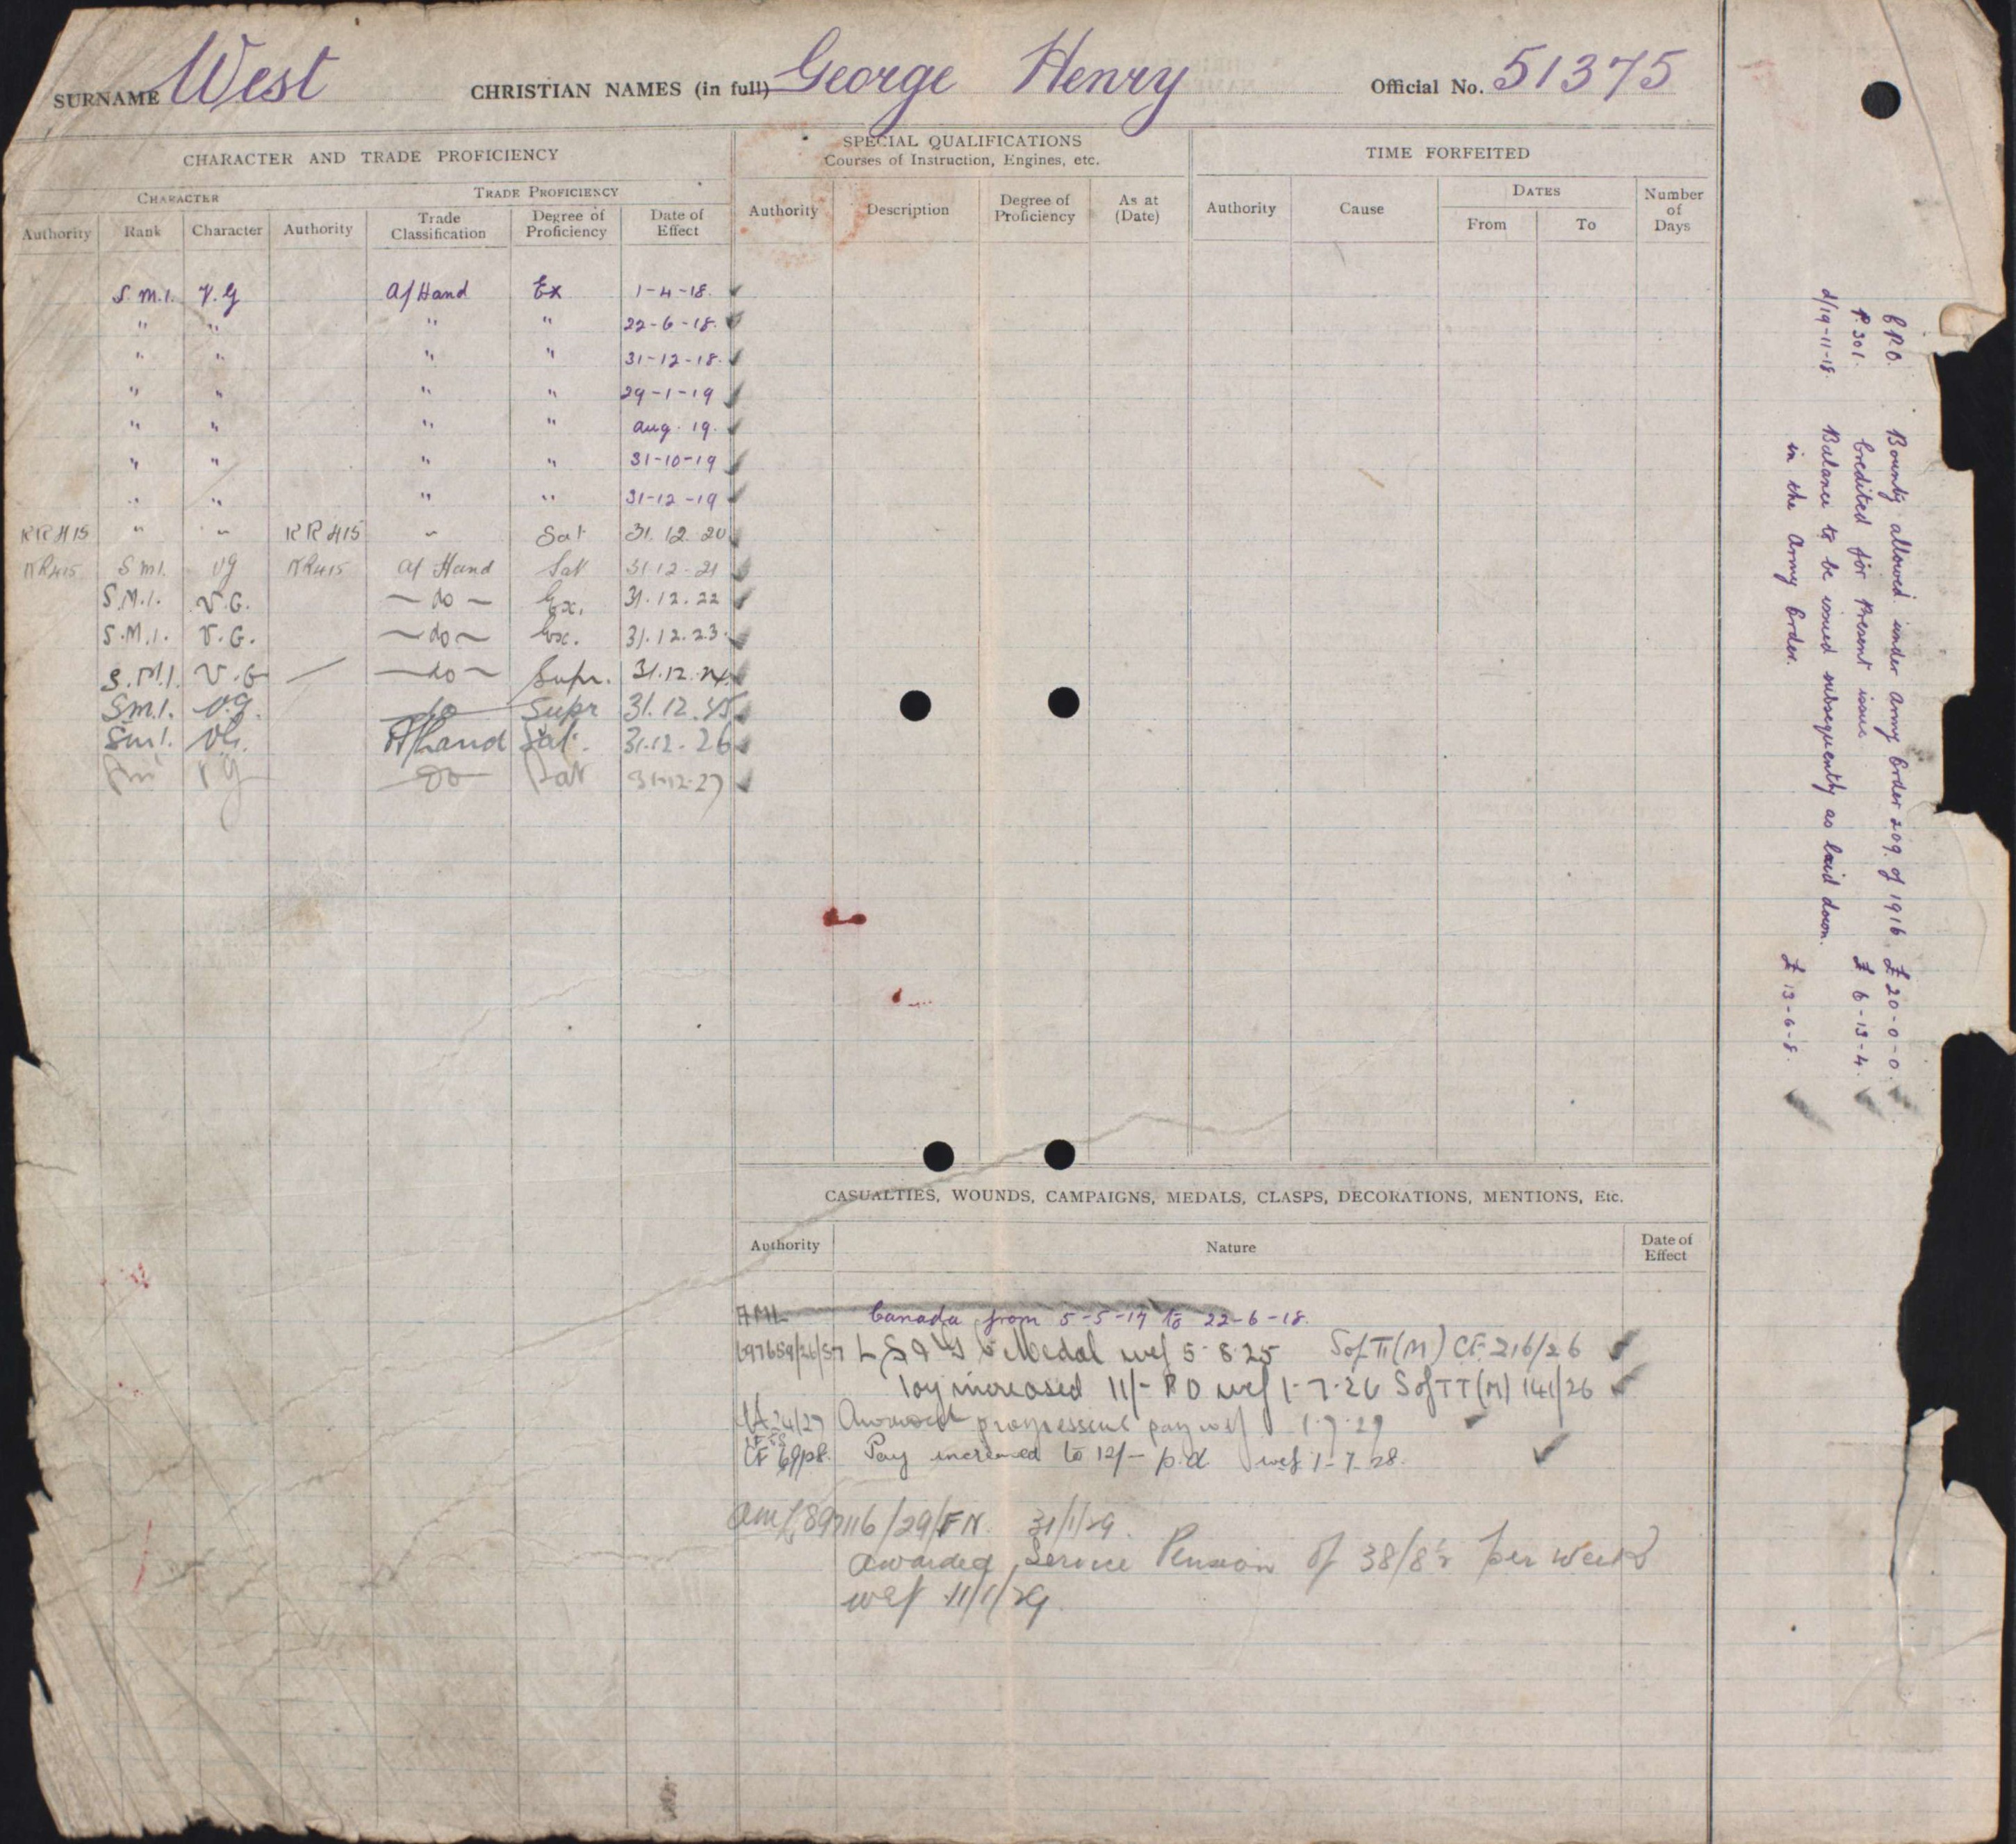 SURNAME West CHRISTIAN NAMES (in full) George Henry Official No. 51375
CHARACTER AND TRADE PROFICIENCY
CHARACTER
TRADE PROFICIENCY
Authority Rank Character Authority Trade Classification Degree of Proficiency Date of Effect
S.M.1. V.G A/Hand Ex 1-4-18.
" " " " 22-6-18.
" " " " 31-12-18.
" " " " 29-1-19
" " " " Aug. 19.
" " " " 31-10-19
" " " " 31-12-19
KR415 " " KR415 " Sat 31.12.20
KR415 S m1. VG KR415 A/ Hand Sat 31.12.21
S.M.1. V.G. -do- Ex. 31.12.22
S.M.1. V.G. -do- Ex. 31.12.23.
S.M.1. V.G - -do- Supr. 31.12.24.
Sm1. VG. do Supr 31.12.25
Sm1. VG. A/hand Sat. 31.12.26
VG do Sat 31.12.27
SPECIAL QUALIFICATIONS
Courses of Instruction, Engines, etc.
Authority Description Degree of Proficiency As at (Date)
TIME FORFEITED
Authority Cause DATES Number of Days
From To
CASUALTIES, WOUNDS, CAMPAIGNS, MEDALS, CLASPS, DECORATIONS, MENTIONS, Etc.
Authority Nature Date of Effect
AML Canada from 5-5-17 to 22-6-18.
697689/26/S7 L S & G C Medal wef 5-8-25 S of TT(M) CF 216/26
Pay increased 11/- P D wef 1-7-26 S of TT(M) 141/26
24/27 Awarded progressive pay wef 1-7-27
CF 69/28. Pay increased to 12/- p.d wef 1-7-28.
AML 897116/29/FN. 31/1/29.
awarded Service Pension of 38/8½ per week
wef 11/1/29.
C.P.O. Bounty allowed under Army Order 209 of 1916 £20-0-0.
P.301. Credited for Present issue £6-13-4.
d/19-11-18. Balance to be issued subsequently as laid down.
in the Army Order. £13-6-8.